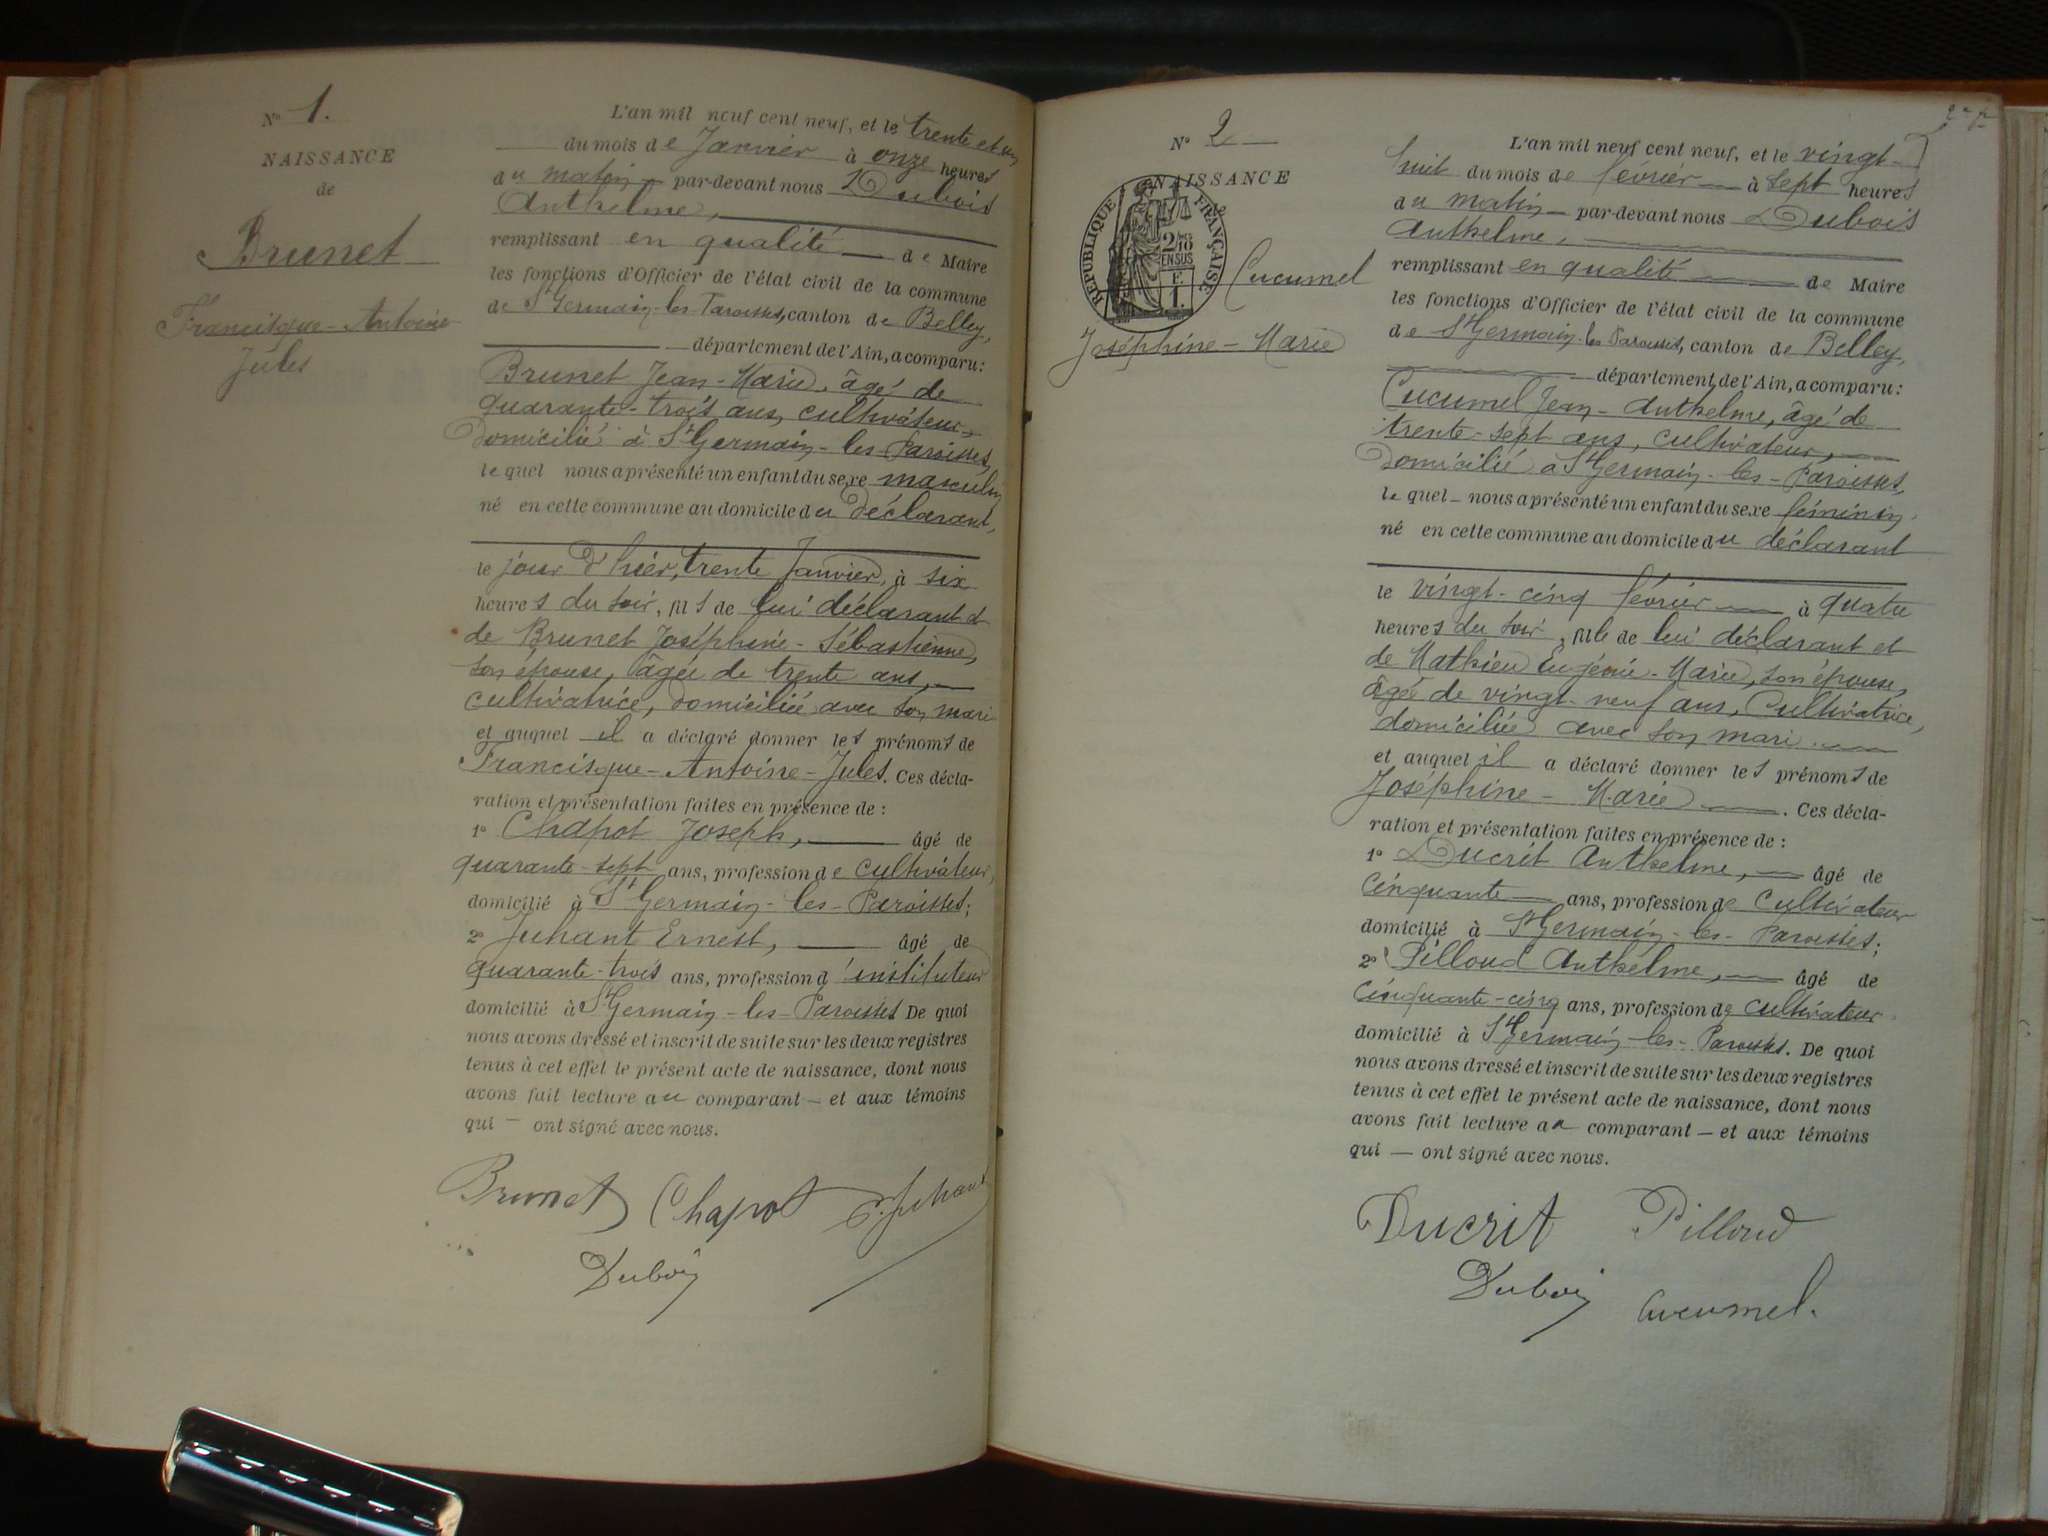 N° 1.
NAISSANCE
de
Brunet
Francisque-Antoine
Jules
L'an mil neuf cent neuf, et le trente et un
du mois de Janvier à onze heures
du matin par-devant nous Dubois
Anthelme,
remplissant en qualité de Maire
les fonctions d'Officier de l'état civil de la commune
de St Germain-les-Paroisses, canton de Belley,
département de l'Ain, a comparu:
Brunet Jean-Marie, âgé de
quarante-trois ans, cultivateur,
domicilié à St Germain-les-Paroisses,
lequel nous a présenté un enfant du sexe masculin
né en cette commune au domicile du déclarant,
le jour d'hier, trente Janvier, à six
heures du soir, fils de lui déclarant et
de Brunet Joséphine-Sébastienne,
son épouse, âgée de trente ans,
cultivatrice, domiciliée avec son mari
et auquel il a déclaré donner les prénoms de
Francisque-Antoine-Jules. Ces décla-
ration et présentation faites en présence de :
1° Chapot Joseph, âgé de
quarante-sept ans, profession de cultivateur,
domicilié à St Germain-les-Paroisses;
2° Juhant Ernest, âgé de
quarante-trois ans, profession d'instituteur
domicilié à St Germain-les-Paroisses De quoi
nous avons dressé et inscrit de suite sur les deux registres
tenus à cet effet le présent acte de naissance, dont nous
avons fait lecture au comparant — et aux témoins
qui — ont signé avec nous.
Brunet Chapot E. Juhant
Dubois
N° 2
NAISSANCE
de
RÉPUBLIQUE FRANÇAISE
2/10
EN SUS
F.
1.
Cucumel
Joséphine-Marie
L'an mil neuf cent neuf, et le vingt-
huit du mois de février à sept heures
du matin par-devant nous Dubois
Anthelme,
remplissant en qualité de Maire
les fonctions d'Officier de l'état civil de la commune
de St Germain-les-Paroisses, canton de Belley,
département de l'Ain, a comparu:
Cucumel Jean-Anthelme, âgé de
trente-sept ans, cultivateur,
domicilié à St Germain-les-Paroisses,
lequel nous a présenté un enfant du sexe féminin,
né en cette commune au domicile du déclarant
le vingt-cinq février à quatre
heures du soir, fille de lui déclarant et
de Mathieu Eugénie-Marie, son épouse,
âgée de vingt-neuf ans, Cultivatrice,
domiciliée avec son mari
et auquel il a déclaré donner les prénoms de
Joséphine-Marie. Ces décla-
ration et présentation faites en présence de :
1° Ducrit Anthelme, âgé de
cinquante ans, profession de Cultivateur
domicilié à St Germain-les-Paroisses;
2° Pilloud Anthelme, âgé de
cinquante-cinq ans, profession de cultivateur
domicilié à St Germain-les-Paroisses. De quoi
nous avons dressé et inscrit de suite sur les deux registres
tenus à cet effet le présent acte de naissance, dont nous
avons fait lecture au comparant — et aux témoins
qui — ont signé avec nous.
Ducrit Pilloud
Dubois Cucumel.